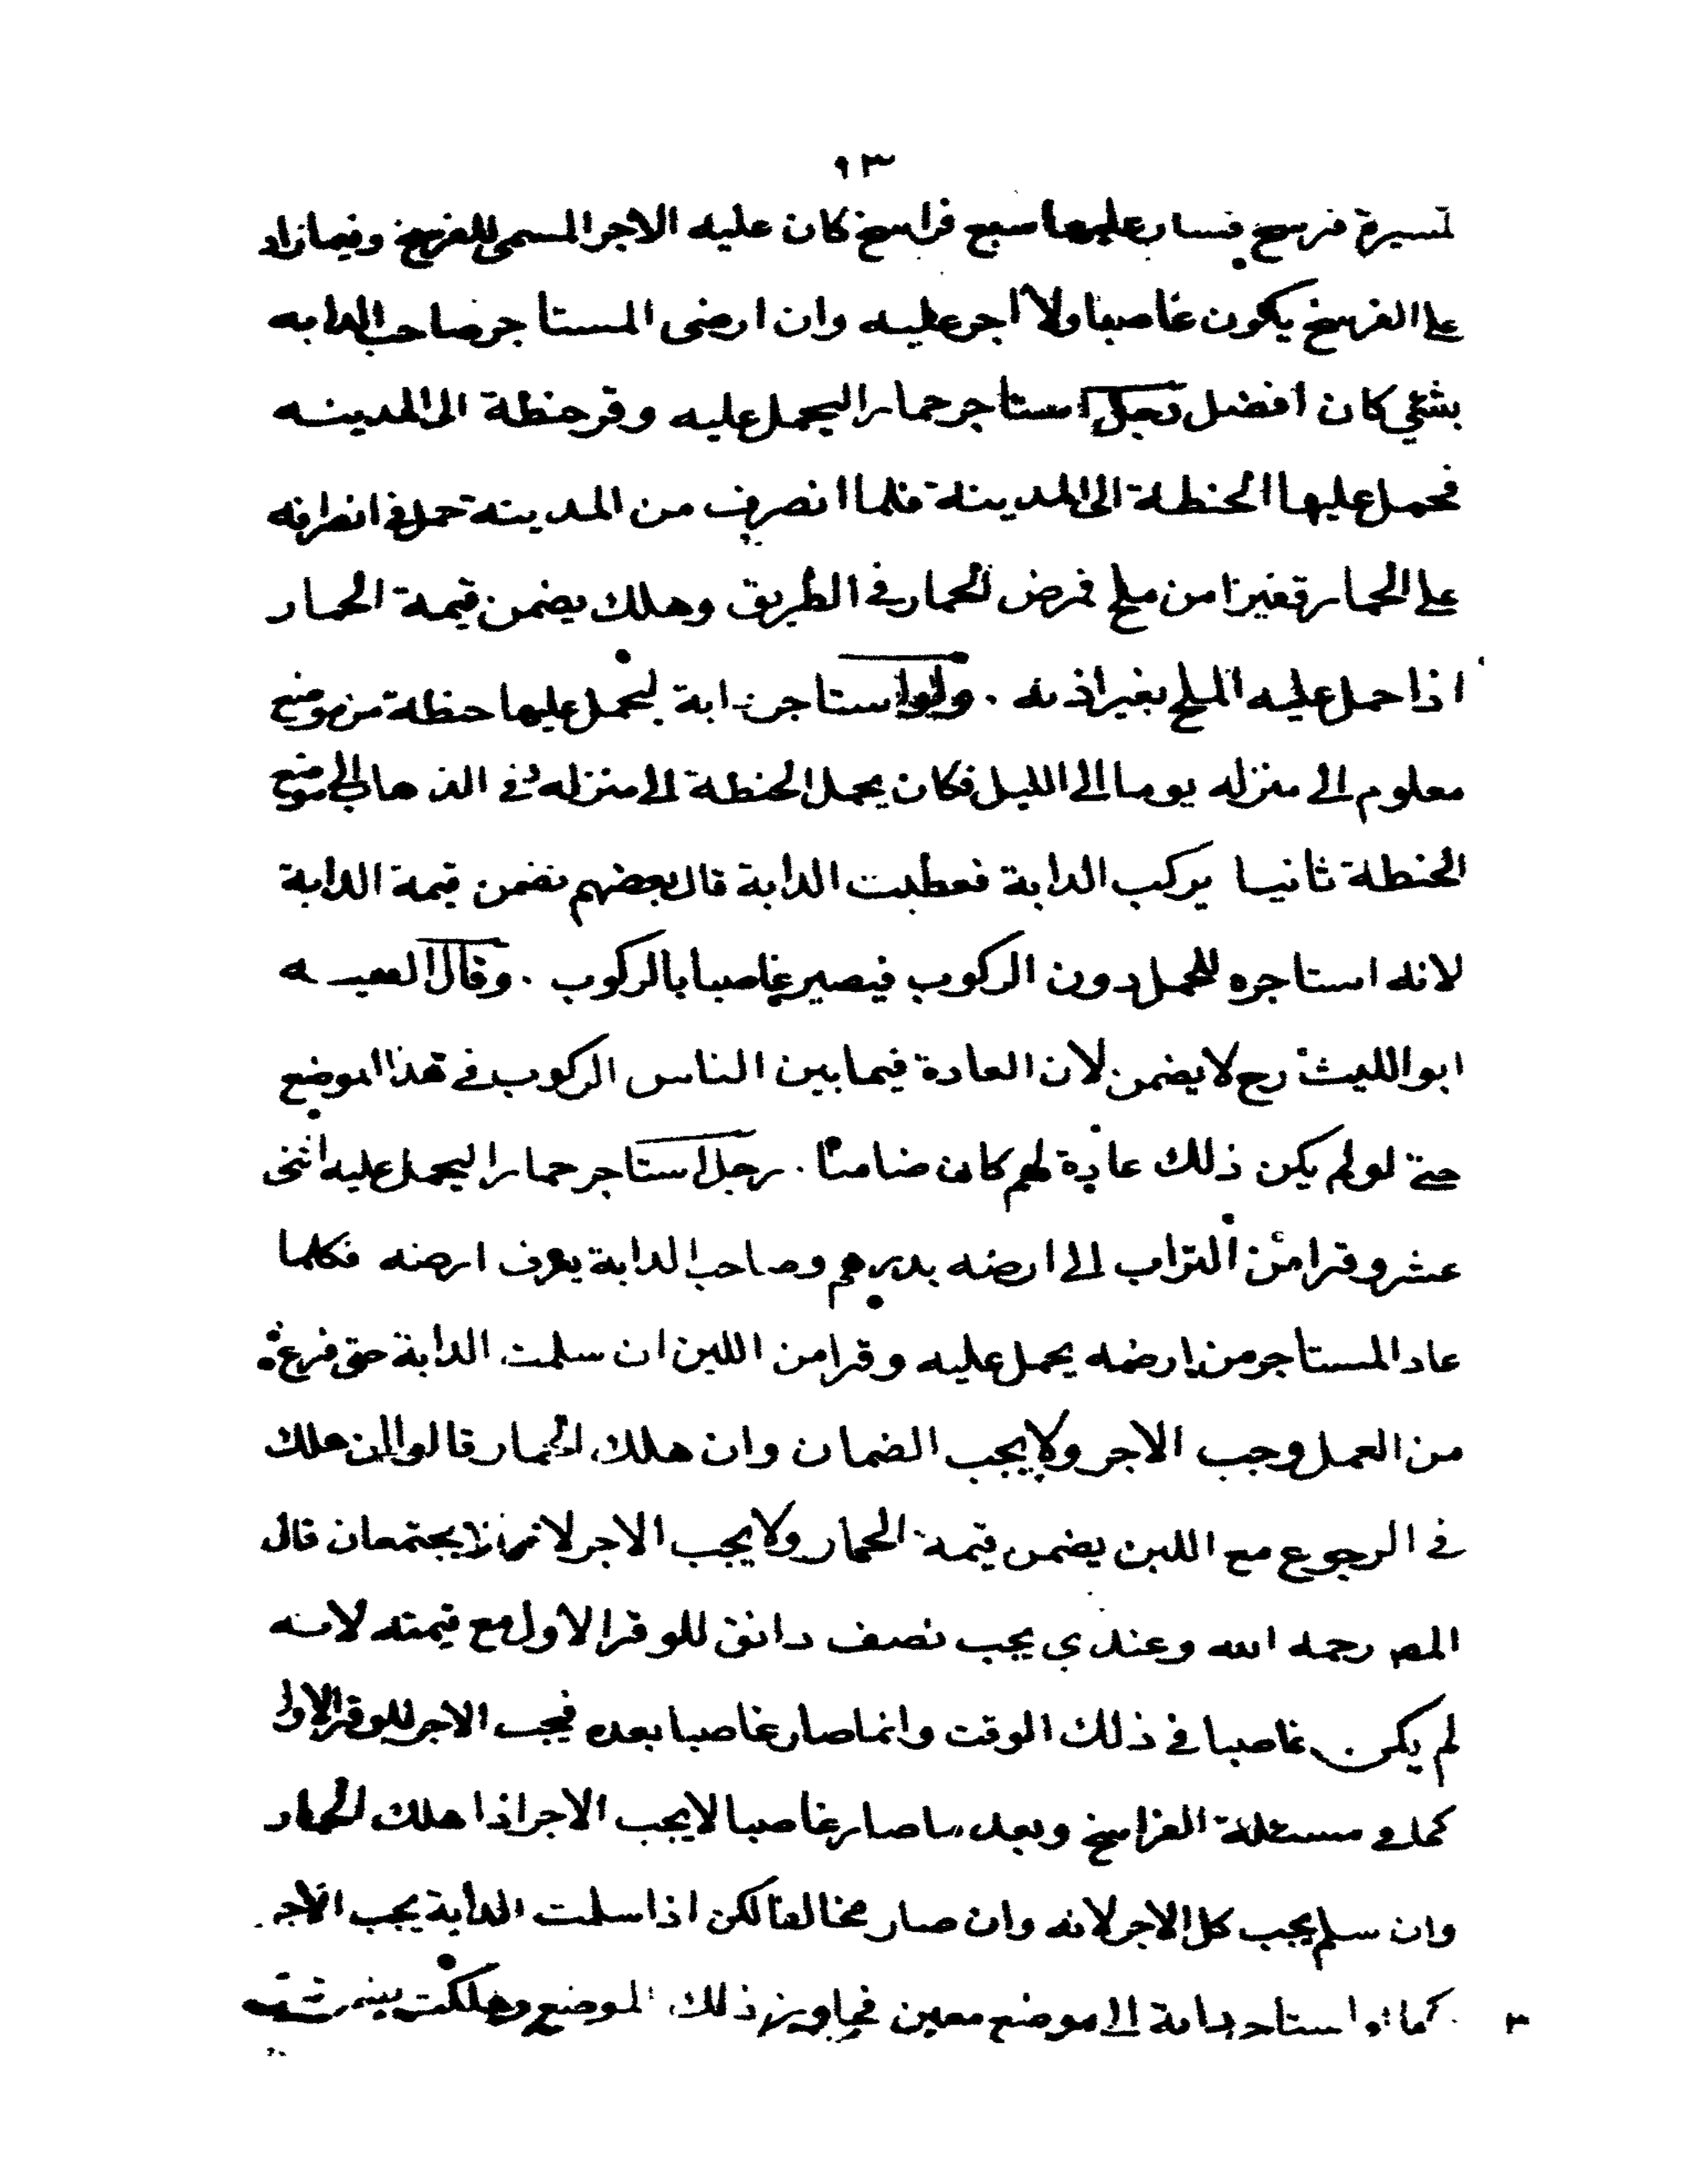 ٩٣
لمسيرة فرسخ فسار عليها سبع فراسخ كان عليه الاجر المسمى للفرسخ وفيما زاد
على الفرسخ يكون غاصبا ولا اجر عليه وان ارضى المستاجر صاحب الدابه
بشئ كان افضل رجل استاجر حمارا ليحمل عليه وقر حنطة الى المدينه
فحمل عليها الحنطة الى المدينة فلما انصرف من المدينة حمل في انصرافه
على الحمار قفيزا من ملح فمرض الحمار في الطريق وهلك يضمن قيمة الحمار
اذا حمل عليه الملح بغير اذنه . ولو استاجر دابة ليحمل عليها حنطة من موضع
معلوم الى منزله يوما الى الليل فكان يحمل الحنطة الى منزله وفي الذهاب الى موضع
الحنطة ثانيا يركب الدابة فعطبت الدابة قال بعضهم يضمن قيمة الدابة
لانه استاجره للحمل دون الركوب فيصير غاصبا بالركوب . وقال الفقيه
ابو الليث رح لا يضمن لان العادة فيما بين الناس الركوب في هذا الموضع
حتى لو لم يكن ذلك عادة لهم كان ضامنا . رجل استاجر حمارا ليحمل عليه اثنى
عشر وقرا من التراب الى ارضه بدرهم وصاحب الدابة يعرف ارضه فكلما
عاد المستاجر من ارضه يحمل عليه وقرا من اللبن ان سلمت الدابة حتى فرغ
من العمل وجب الاجر ولا يجب الضمان وان هلك الحمار قالوا ان هلك
في الرجوع مع اللبن يضمن قيمة الحمار ولا يجب الاجر لانهما لا يجتمعان قال
المص رحمه الله وعندي يجب نصف دانق للوقر الاول مع قيمته لانه
لم يكن غاصبا في ذلك الوقت وانما صار غاصبا بعده فيجب الاجر للوقر الاول
كما في مسئلة الفراسخ وبعد ما صار غاصبا لا يجب الاجر اذا هلك الحمار
وان سلم يجب كل الاجر لانه وان صار مخالفا لكن اذا سلمت الدابة يجب الاجر
كما لو استاجر دابة الى موضع معين فجاوز ذلك الموضع وهلكت